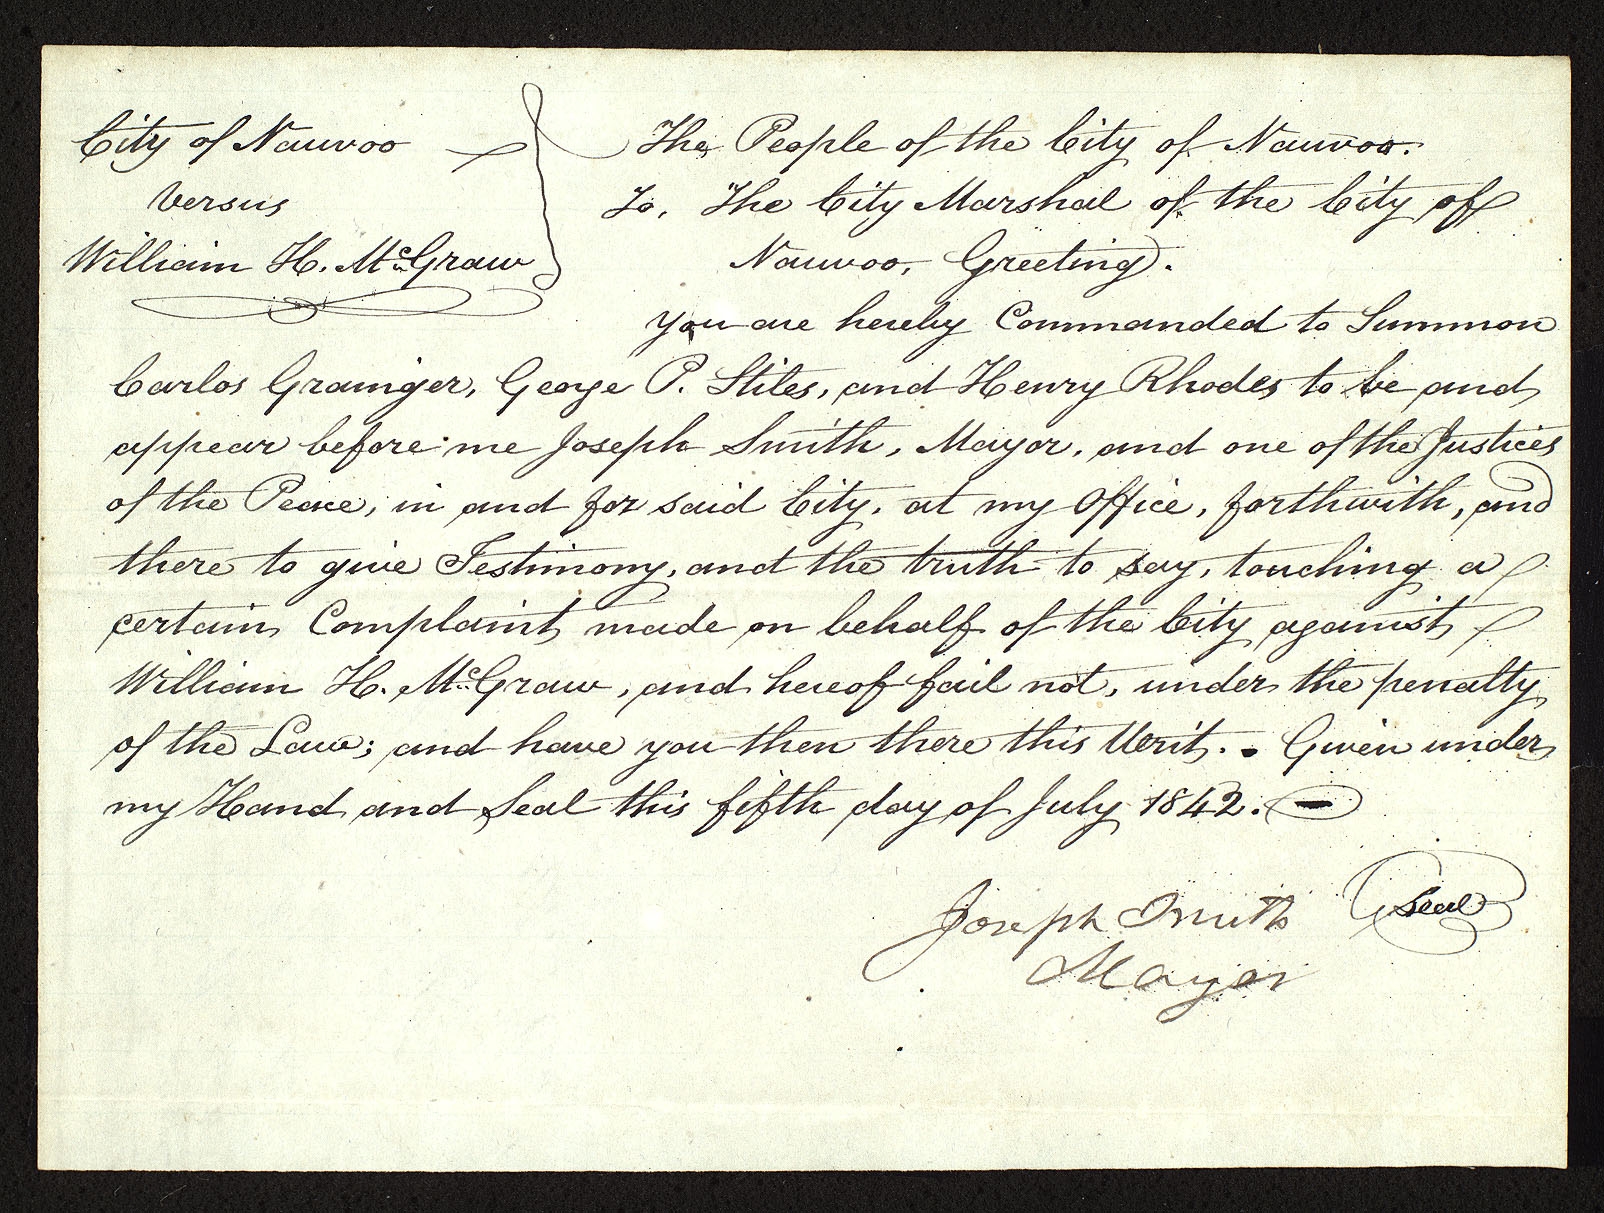 City of Nauvoo
versus
William H. McGraw
The People of the City of Nauvoo.
To, The City Marshal of the City of
Nauvoo, Greeting.
You are hereby Commanded to Summon
Carlos Grainger, George P. Stiles, and Henry Rhodes to be and
appear before me Joseph Smith, Mayor, and one of the Justices
of the Peace, in and for said City, at my Office, forthwith, and
there to give Testimony, and the truth to say, touching a
certain Complaint made on behalf of the City against
William H. McGraw, and hereof fail not, under the penalty
of the Law; and have you then there this Writ. Given under
my Hand and Seal this fifth day of July 1842. —
Joseph Smith
Seal
Mayor